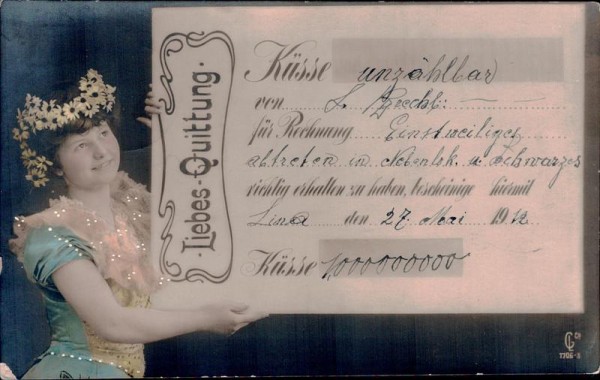 Liebes-Quittung.
Küsse unzählbar
von L.
für Rechnung Einstweiliges
abtreten in u. schwarzes
richtig erhalten zu haben, bescheinige hiermit
den 27. Mai 1912
Küsse 1,000000000
7706-8